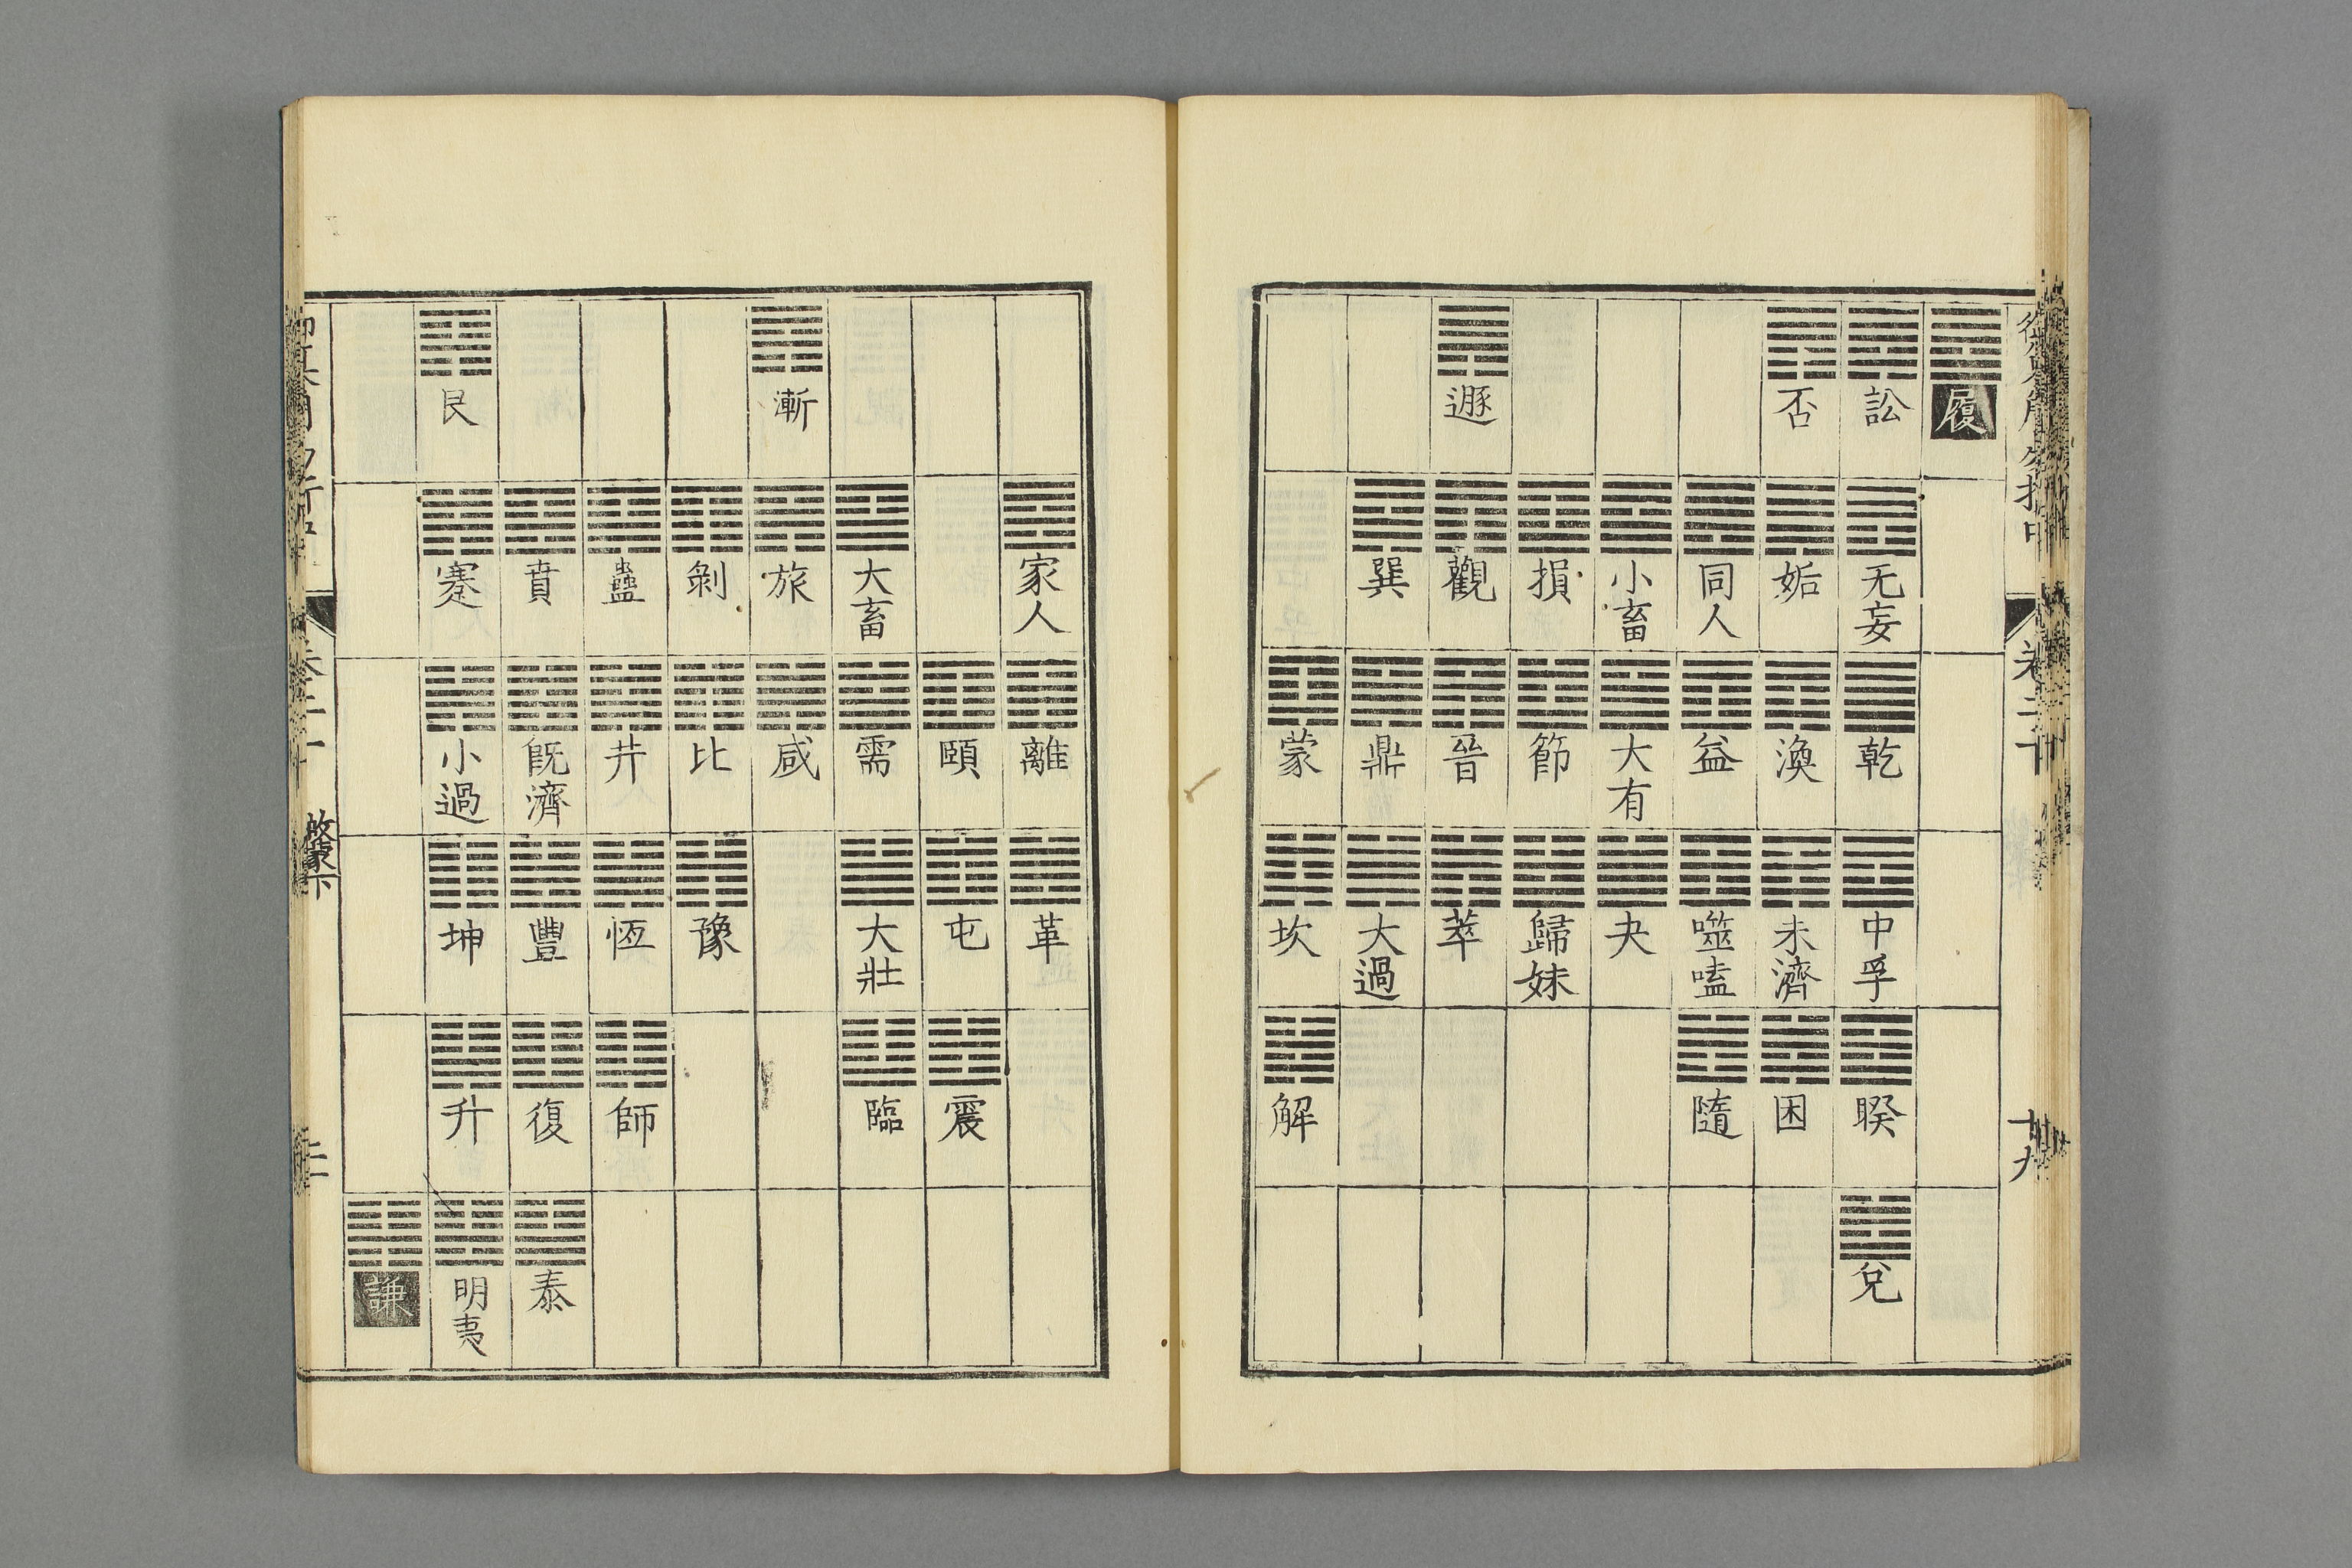 卷二十
十九
履
訟 无妄 乾 中孚 睽 兌
否 姤 渙 未濟 困
同人 益 噬嗑 隨
小畜 大有 夬
損 節 歸妹
遯 觀 晉 萃
巽 鼎 大過
蒙 坎 解
家人 離 革
頤 屯 震
大畜 需 大壯 臨
漸 旅 咸
剝 比 豫
蠱 井 恆 師
賁 旣濟 豐 復 泰
艮 蹇 小過 坤 升 明夷
謙
啟蒙下